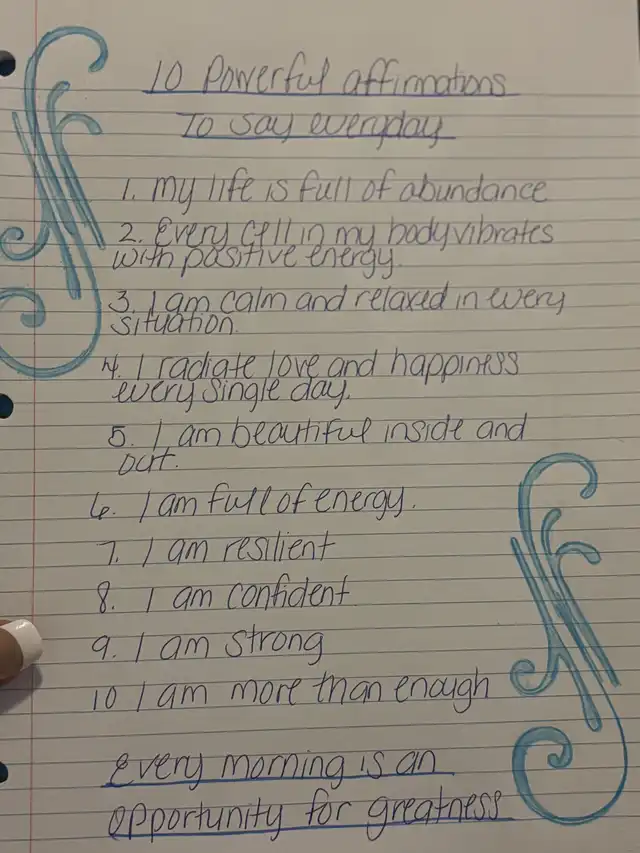 10 Powerful affirmations
To say everyday
1. my life is full of abundance
2. Every cell in my body vibrates
with positive energy.
3. I am calm and relaxed in every
situation.
4. I radiate love and happiness
every single day.
5. I am beautiful inside and
out.
6. I am full of energy.
7. I am resilient
8. I am confident
9. I am strong
10 I am more than enough
Every morning is an
opportunity for greatness